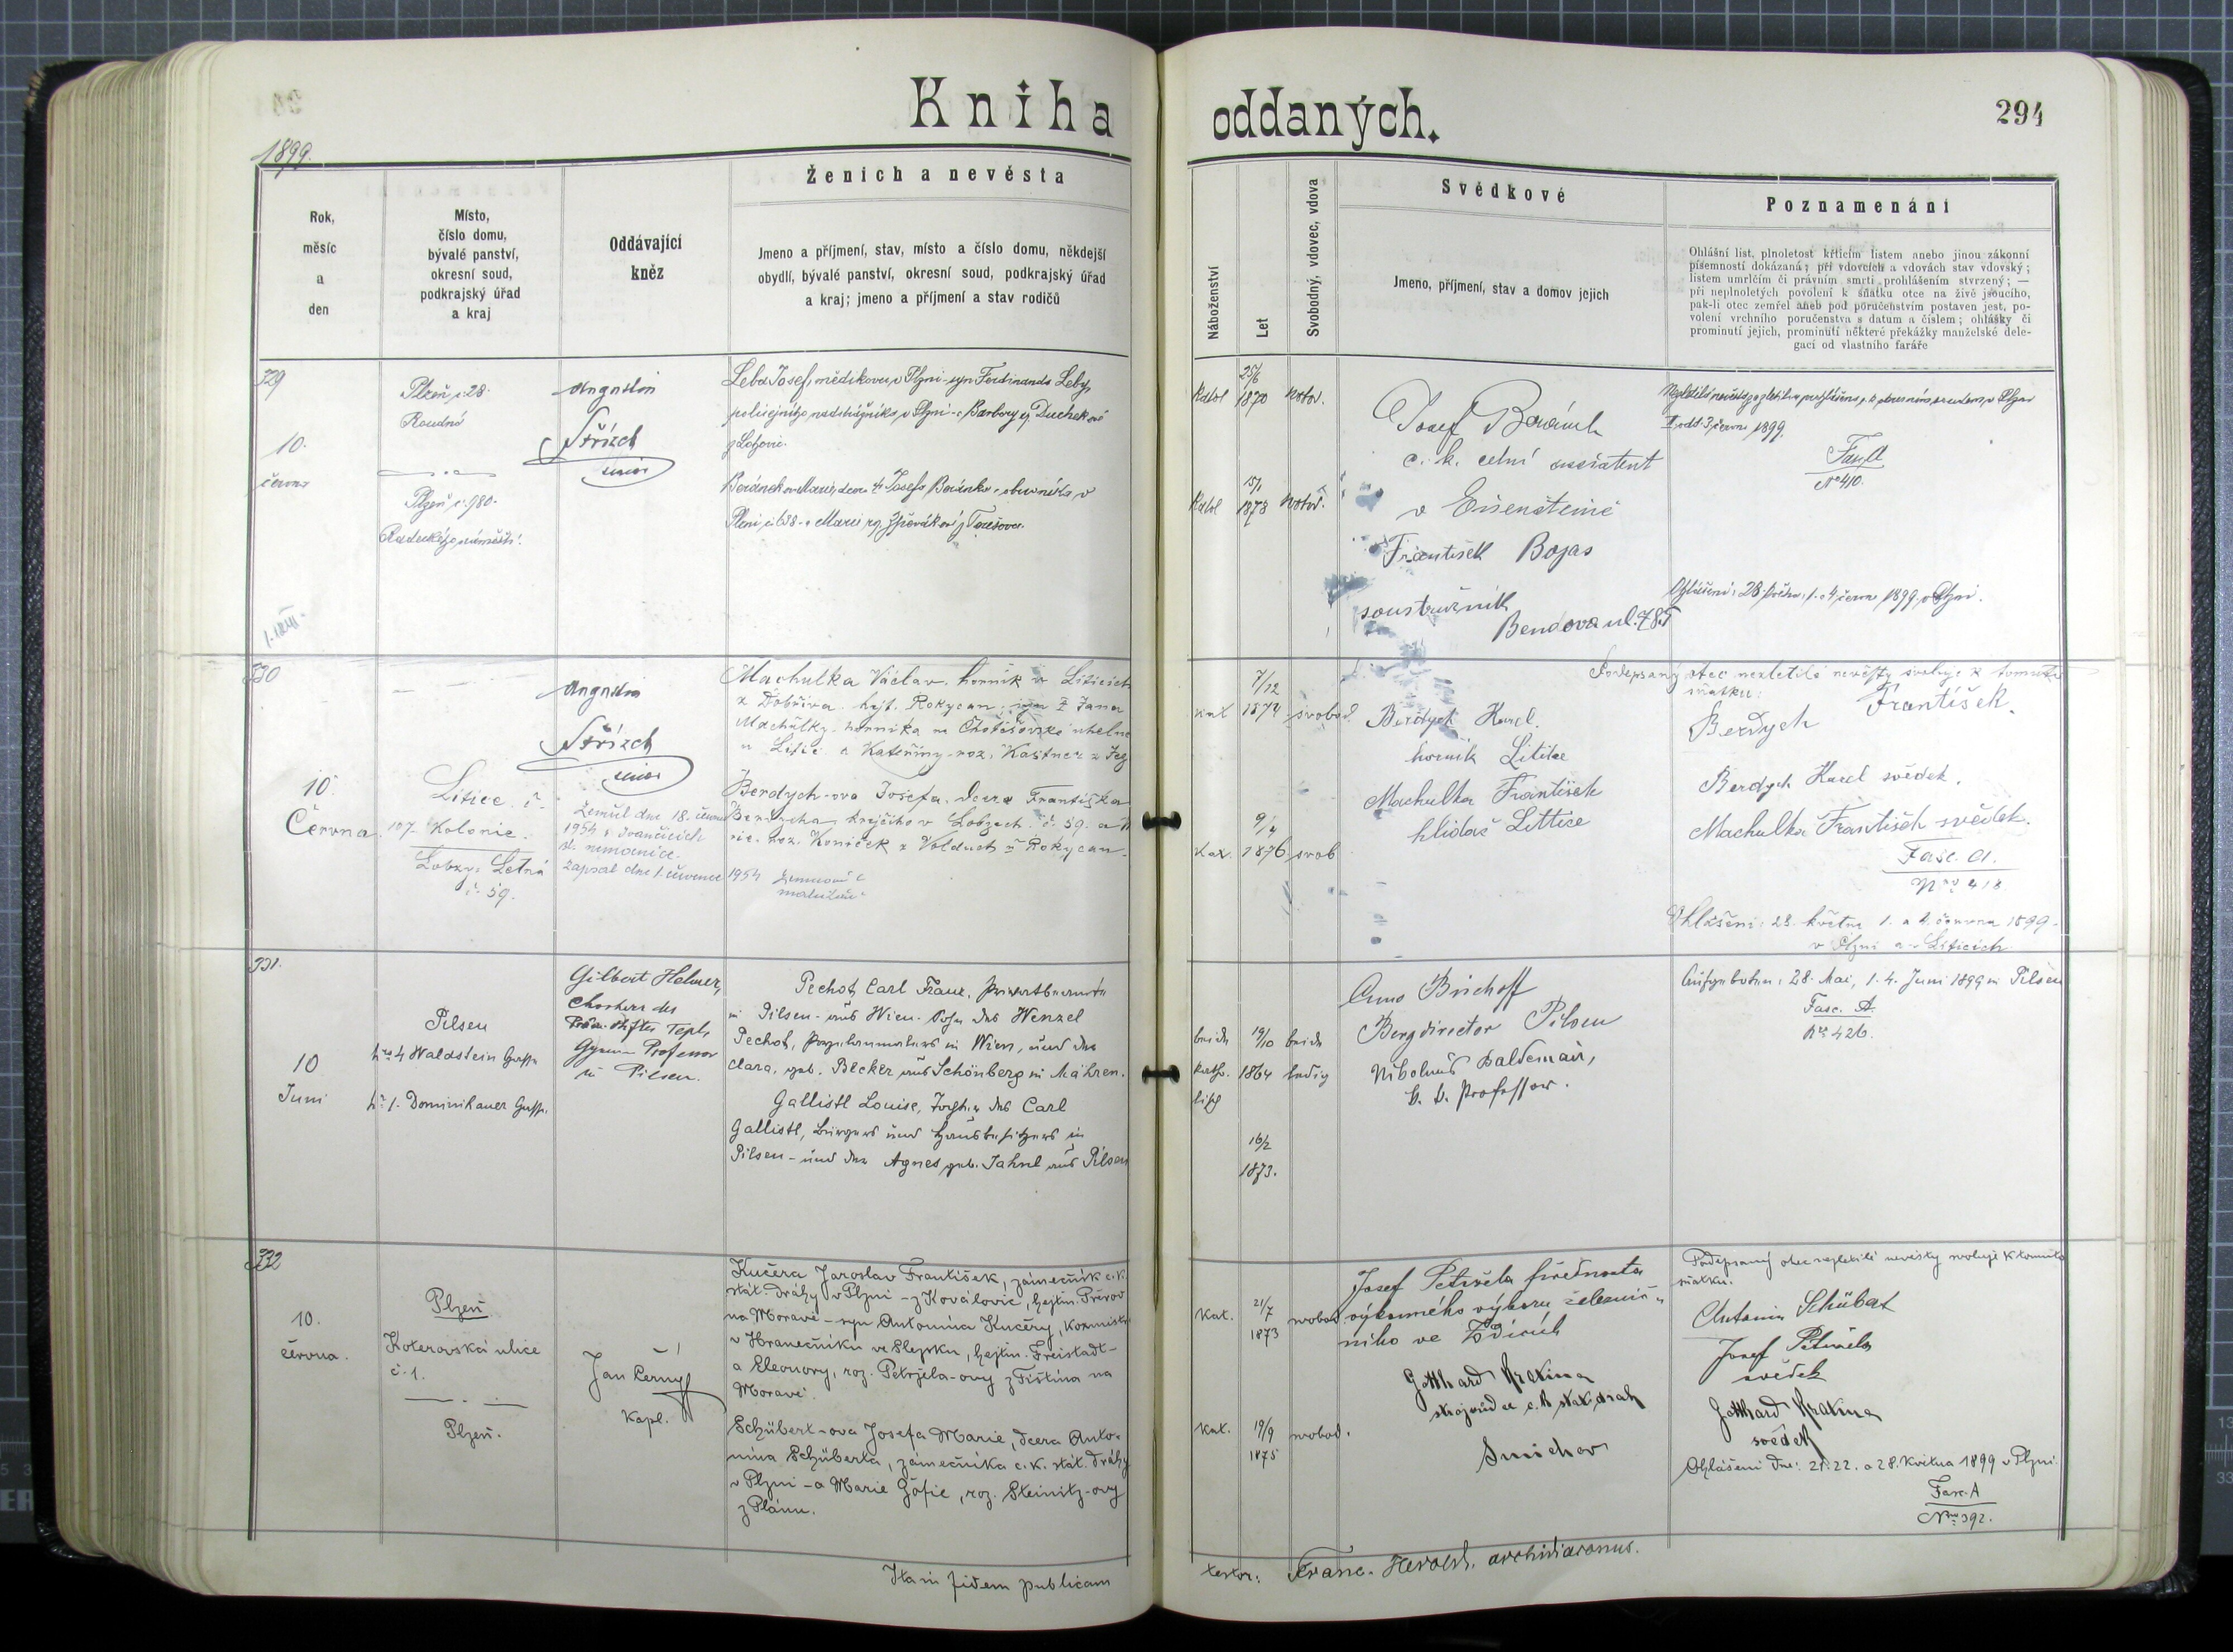 Kniha oddaných.
294
1899.
Rok,
měsíc
a
den
Místo,
číslo domu,
bývalé panství,
okresní soud,
podkrajský úřad
a kraj
Oddávající
kněz
Ženich a nevěsta
Jmeno a příjmení, stav, místo a číslo domu, někdejší
obydlí, bývalé panství, okresní soud, podkrajský úřad
a kraj; jmeno a příjmení a stav rodičů
Náboženství
Let
Svobodný, vdovec, vdova
Svědkové
Jmeno, příjmení, stav a domov jejich
Poznamenání
Ohlášní list, plnoletost křticím listem anebo jinou zákonní
písemností dokázaná; při vdovcích a vdovách stav vdovský;
listem umrlčím či právním smrti prohlášením stvrzený; —
při neplnoletých povolení k sňatku otce na živě jsoucího,
pak-li otec zemřel aneb pod poručenstvím postaven jest, po-
volení vrchního poručenstva s datum a číslem; ohlášky či
prominutí jejich, prominutí některé překážky manželské dele-
gací od vlastního faráře
329
10.
června
Plzeň, č. 28.
Roudná
Plzeň č. 980.
Radeckého náměstí.
Augustin
Střízek
senior
Leba Josef, mědikovec v Plzni syn Ferdinanda Leby,
policejního nadstrážníka v Plzni a Barbory
Beránek-ova Marie, dcera Josefa Beránka, obuvníka v
Plzni
Katol
25/6
1870
Katol
15/1
1878
Josef Beránek
c. k. celní assistent
v Eisensteině
František Bojas
soustružník
Bendova ul. 785
3. června 1899.
Fasc. A
No 410.
Ohlášení: 28. května, 1. a 4. června 1899 v Plzni.
330
10.
Června
Litice č.
107 Kolonie.
Lobzy: Letná
č. 59.
Augustin
Střízek
senior
Zemřel dne 18. června
1954 v Ivančicích
zapsal dne 1. července 1954
Machulka Václav, horník v Liticích
z Dobříva, hejt. Rokycan, syn Jana
Machulky, horníka
u Litic a Kateřiny roz. Kastner
Berdych-ova Josefa, dcera Františka
Berdycha krejčího v Lobzech č. 59. a
rie, roz. Koníček z Volduch Rokycan
kat
7/12
1874
svobod.
9/4
1876
svob
Berdych Karel.
horník Litice
Machulka František
hlídač Littice
Podepsaný otec nezletilé nevěsty svoluje k tomuto
sňatku:
František
Berdych
Berdych Karel svědek.
Machulka František svědek.
Fasc. A.
Nro 418
Ohlášení: 28. května 1. a 4. června 1899
v Plzni a Liticích
331.
10
Juni
Pilsen
Nro 4 Waldstein Gasse
No 1. Dominikaner Gasse.
Gilbert Helmer,
Chorherr des
Präm. Stiftes Tepl,
Gymn. Professor
in Pilsen.
Pechot, Carl Franz, Privatbeamter
in Pilsen - aus Wien. Sohn des Wenzel
Pechot, in Wien, und der
Clara, geb. Becker aus Schönberg in Mähren.
Gallistl Louise, Tochter des Carl
Gallistl, Bürgers und Hausbesitzers in
Pilsen - und der Agnes, geb. Jahnl aus Pilsen
beide
kath.
lisch
19/10
1864
16/2
1873.
beide
ledig
Bischoff
Bergdirector Pilsen
Nikolaus Baldemair,
k. k. Professor.
Aufgeboten: 28. Mai, 1. 4. Juni 1899 in Pilsen
Fasc. A.
Nro 426.
332
10.
června.
Plzeň.
Koterovská ulice
č. 1.
Plzeň.
Jan Černý
kapl.
Kučera Jaroslav František, zámečník c. k.
stát. dráhy v Plzni - z Kovalovic, hejtm. Přerov
na Moravě - syn Antonína Kučery,
v Hranečníku ve Slezsku, hejtm. Freistadt -
a Eleonory, roz. Petržela-ovy z Tištína na
Moravě.
Schübert-ova Josefa Marie, dcera Anto-
nína Schüberta, zámečníka c. k. stát. dráhy
v Plzni - a Marie Žofie, roz. Steinitz-ovy
z Plánu.
Kat.
21/7
1873
svobod
Kat.
19/9
1875
svobod.
Josef Petržela přednosta
výkonného výboru železnič-
ního ve Zdicích
Gotthard Kratina
strojvůdce c. k. stát. drah
Smíchov
Podepsaný otec nezletilé nevěsty svoluje k tomuto
sňatku.
Antonín Schübert
Josef Petržela
svědek
Gotthard Kratina
svědek
Ohlášení dne: 21. 22. a 28. května 1899 v Plzni.
Fasc. A
Nro 392.
Ita in fidem publicam
testor: Franc. Herold, archidiaconus.